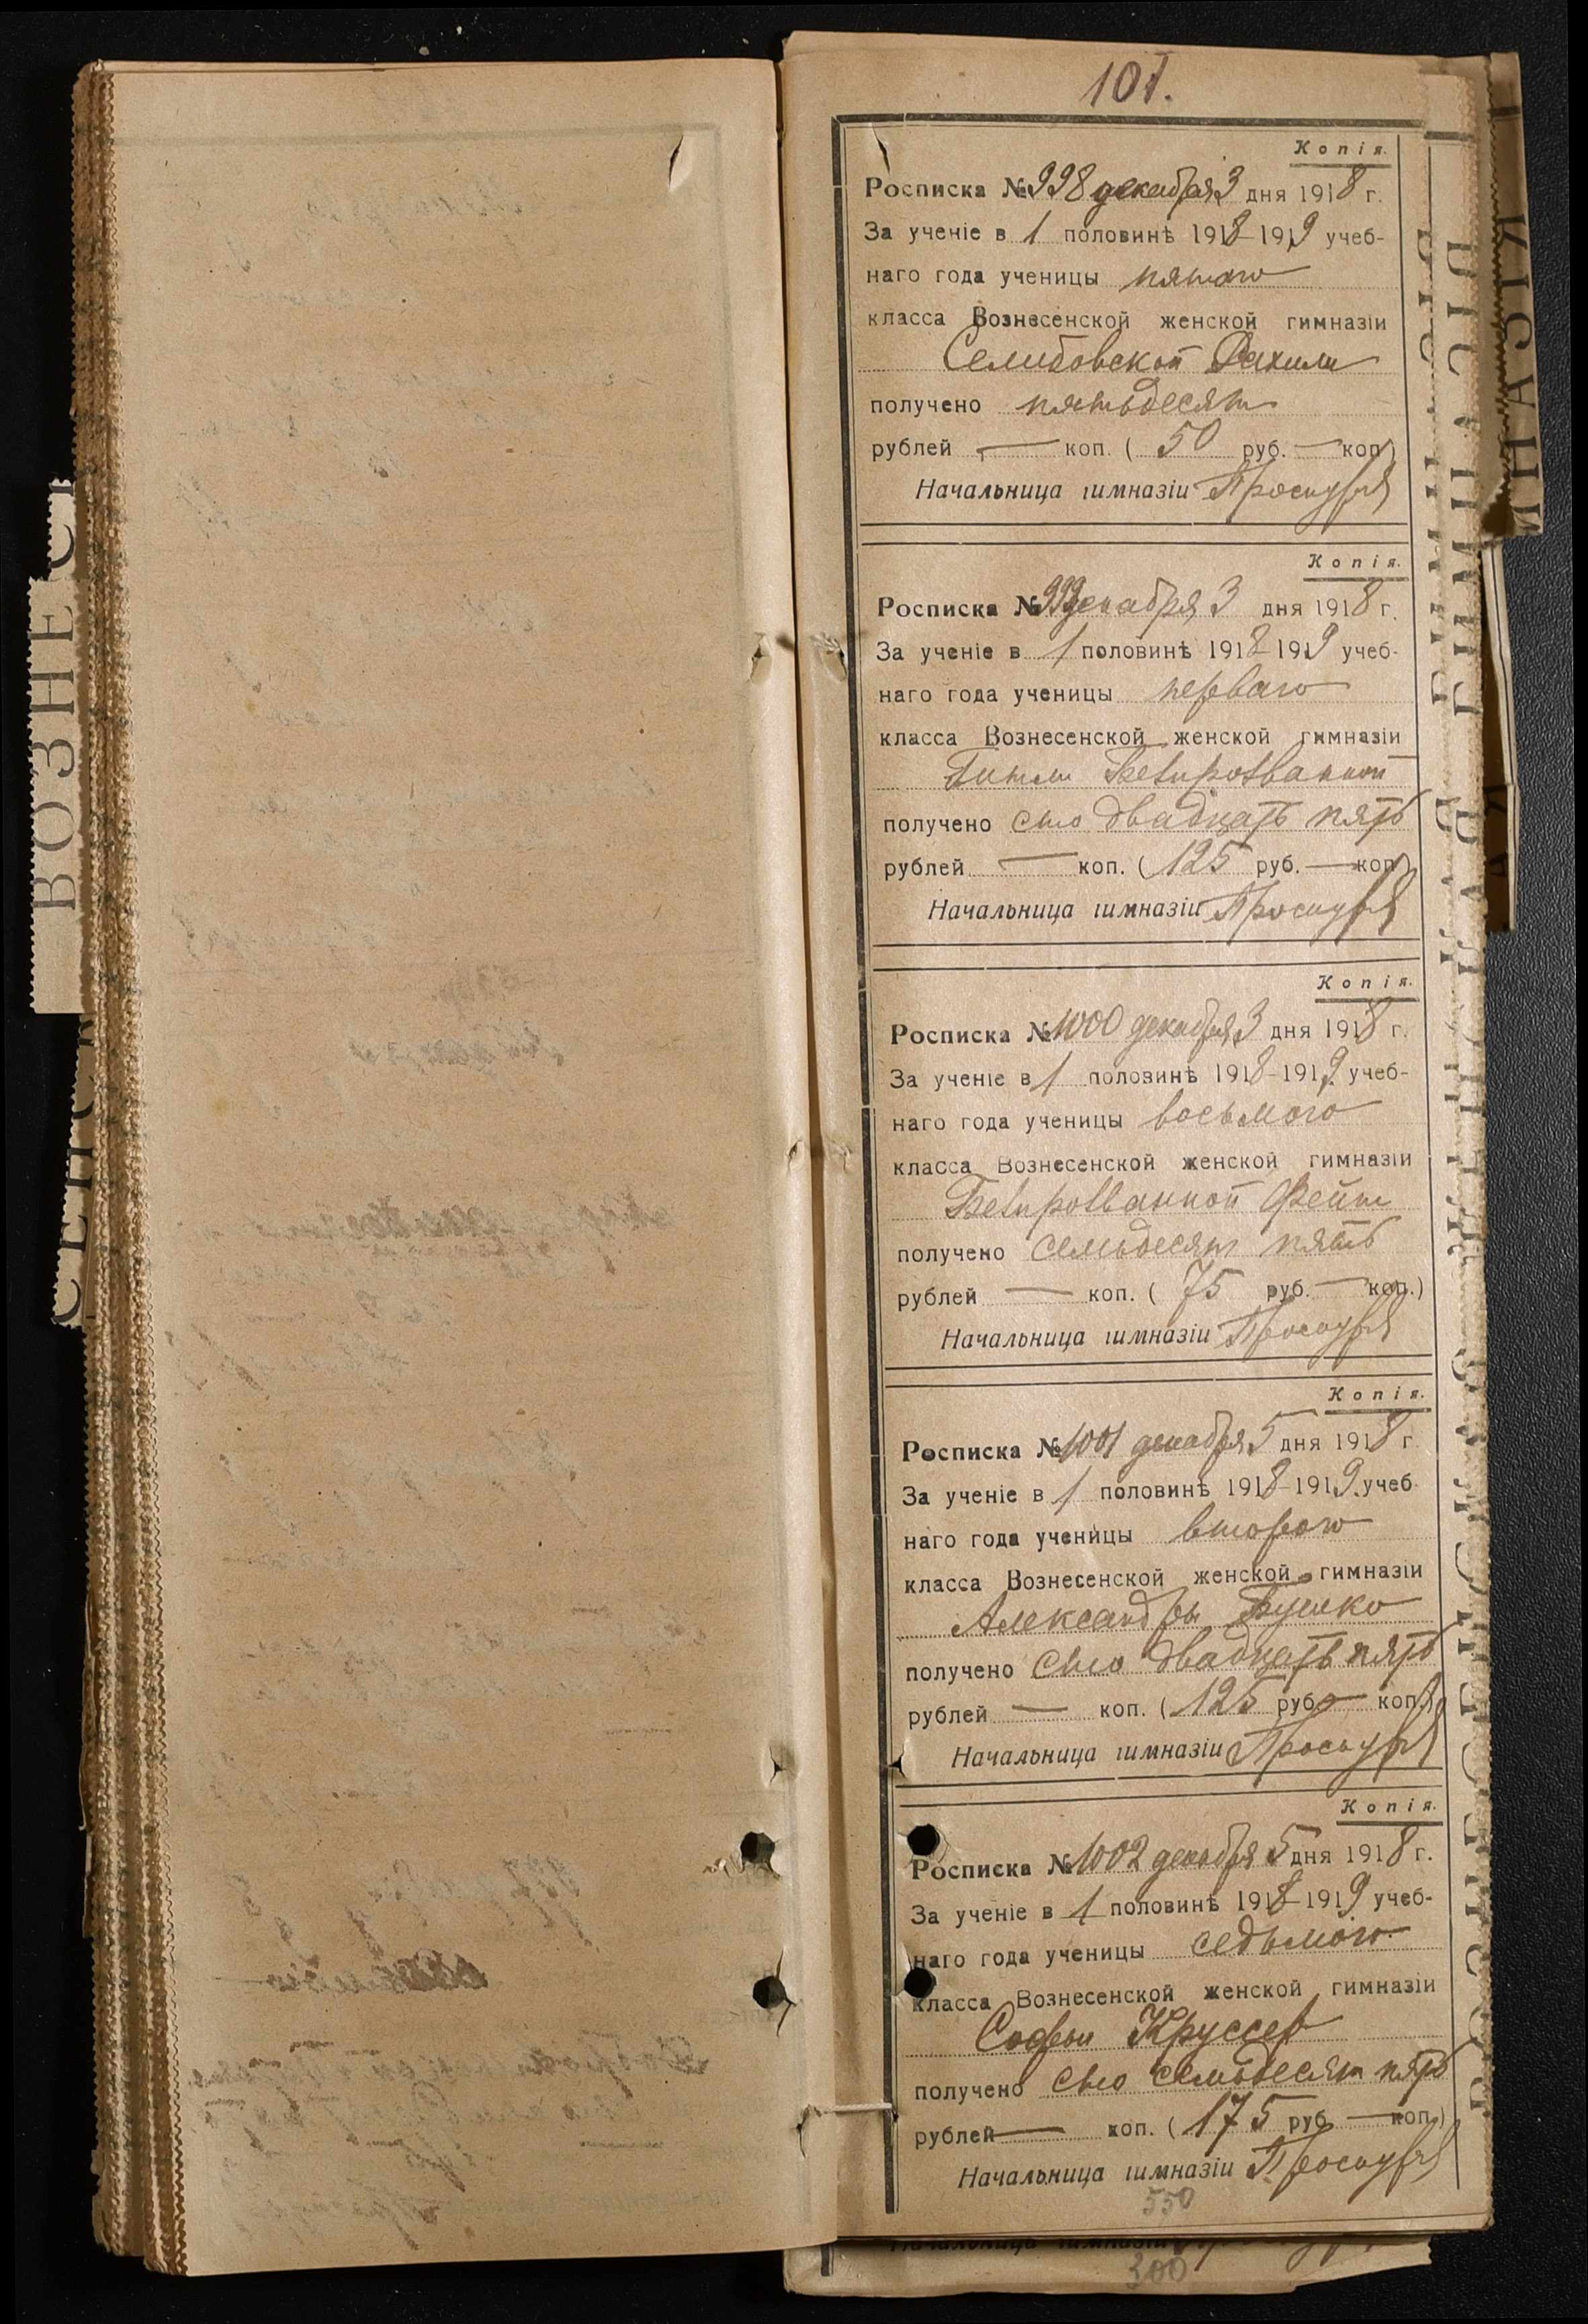 101.
Копія.
Росписка № 998 декабря 3 дня 1918 г.
За ученіе в 1 половинѣ 1918-1919 учеб-
наго года ученицы пятого
класса Вознесенской женской гимназіи
Селибовской Рахили
получено пятьдесят
рублей — коп. (50 руб. — коп.)
Начальница гимназіи
Копія.
Росписка № 999 декабря 3 дня 1918 г.
За ученіе в 1 половинѣ 1918-1919 учеб-
наго года ученицы перваго
класса Вознесенской женской гимназіи
получено сто двадцать пять
рублей — коп. (125 руб. — коп.)
Начальница гимназіи
Копія.
Росписка № 1000 декабря 3 дня 1918 г.
За ученіе в 1 половинѣ 1918-1919 учеб-
наго года ученицы восьмого
класса Вознесенской женской гимназіи
получено семьдесят пять
рублей — коп. (75 руб. — коп.)
Начальница гимназіи
Копія.
Росписка № 1001 декабря 5 дня 1918 г.
За ученіе в 1 половинѣ 1918-1919 учеб-
наго года ученицы второго
класса Вознесенской женской гимназіи
Александры
получено сто двадцать пять
рублей — коп. (125 руб. — коп.)
Начальница гимназіи
Копія.
Росписка № 1002 декабря 5 дня 1918 г.
За ученіе в 1 половинѣ 1918-1919 учеб-
наго года ученицы седьмого
класса Вознесенской женской гимназіи
Софьи Круссер
получено сто семьдесят пять
рублей — коп. (175 руб. — коп.)
Начальница гимназіи
550
300
ВОЗНЕС